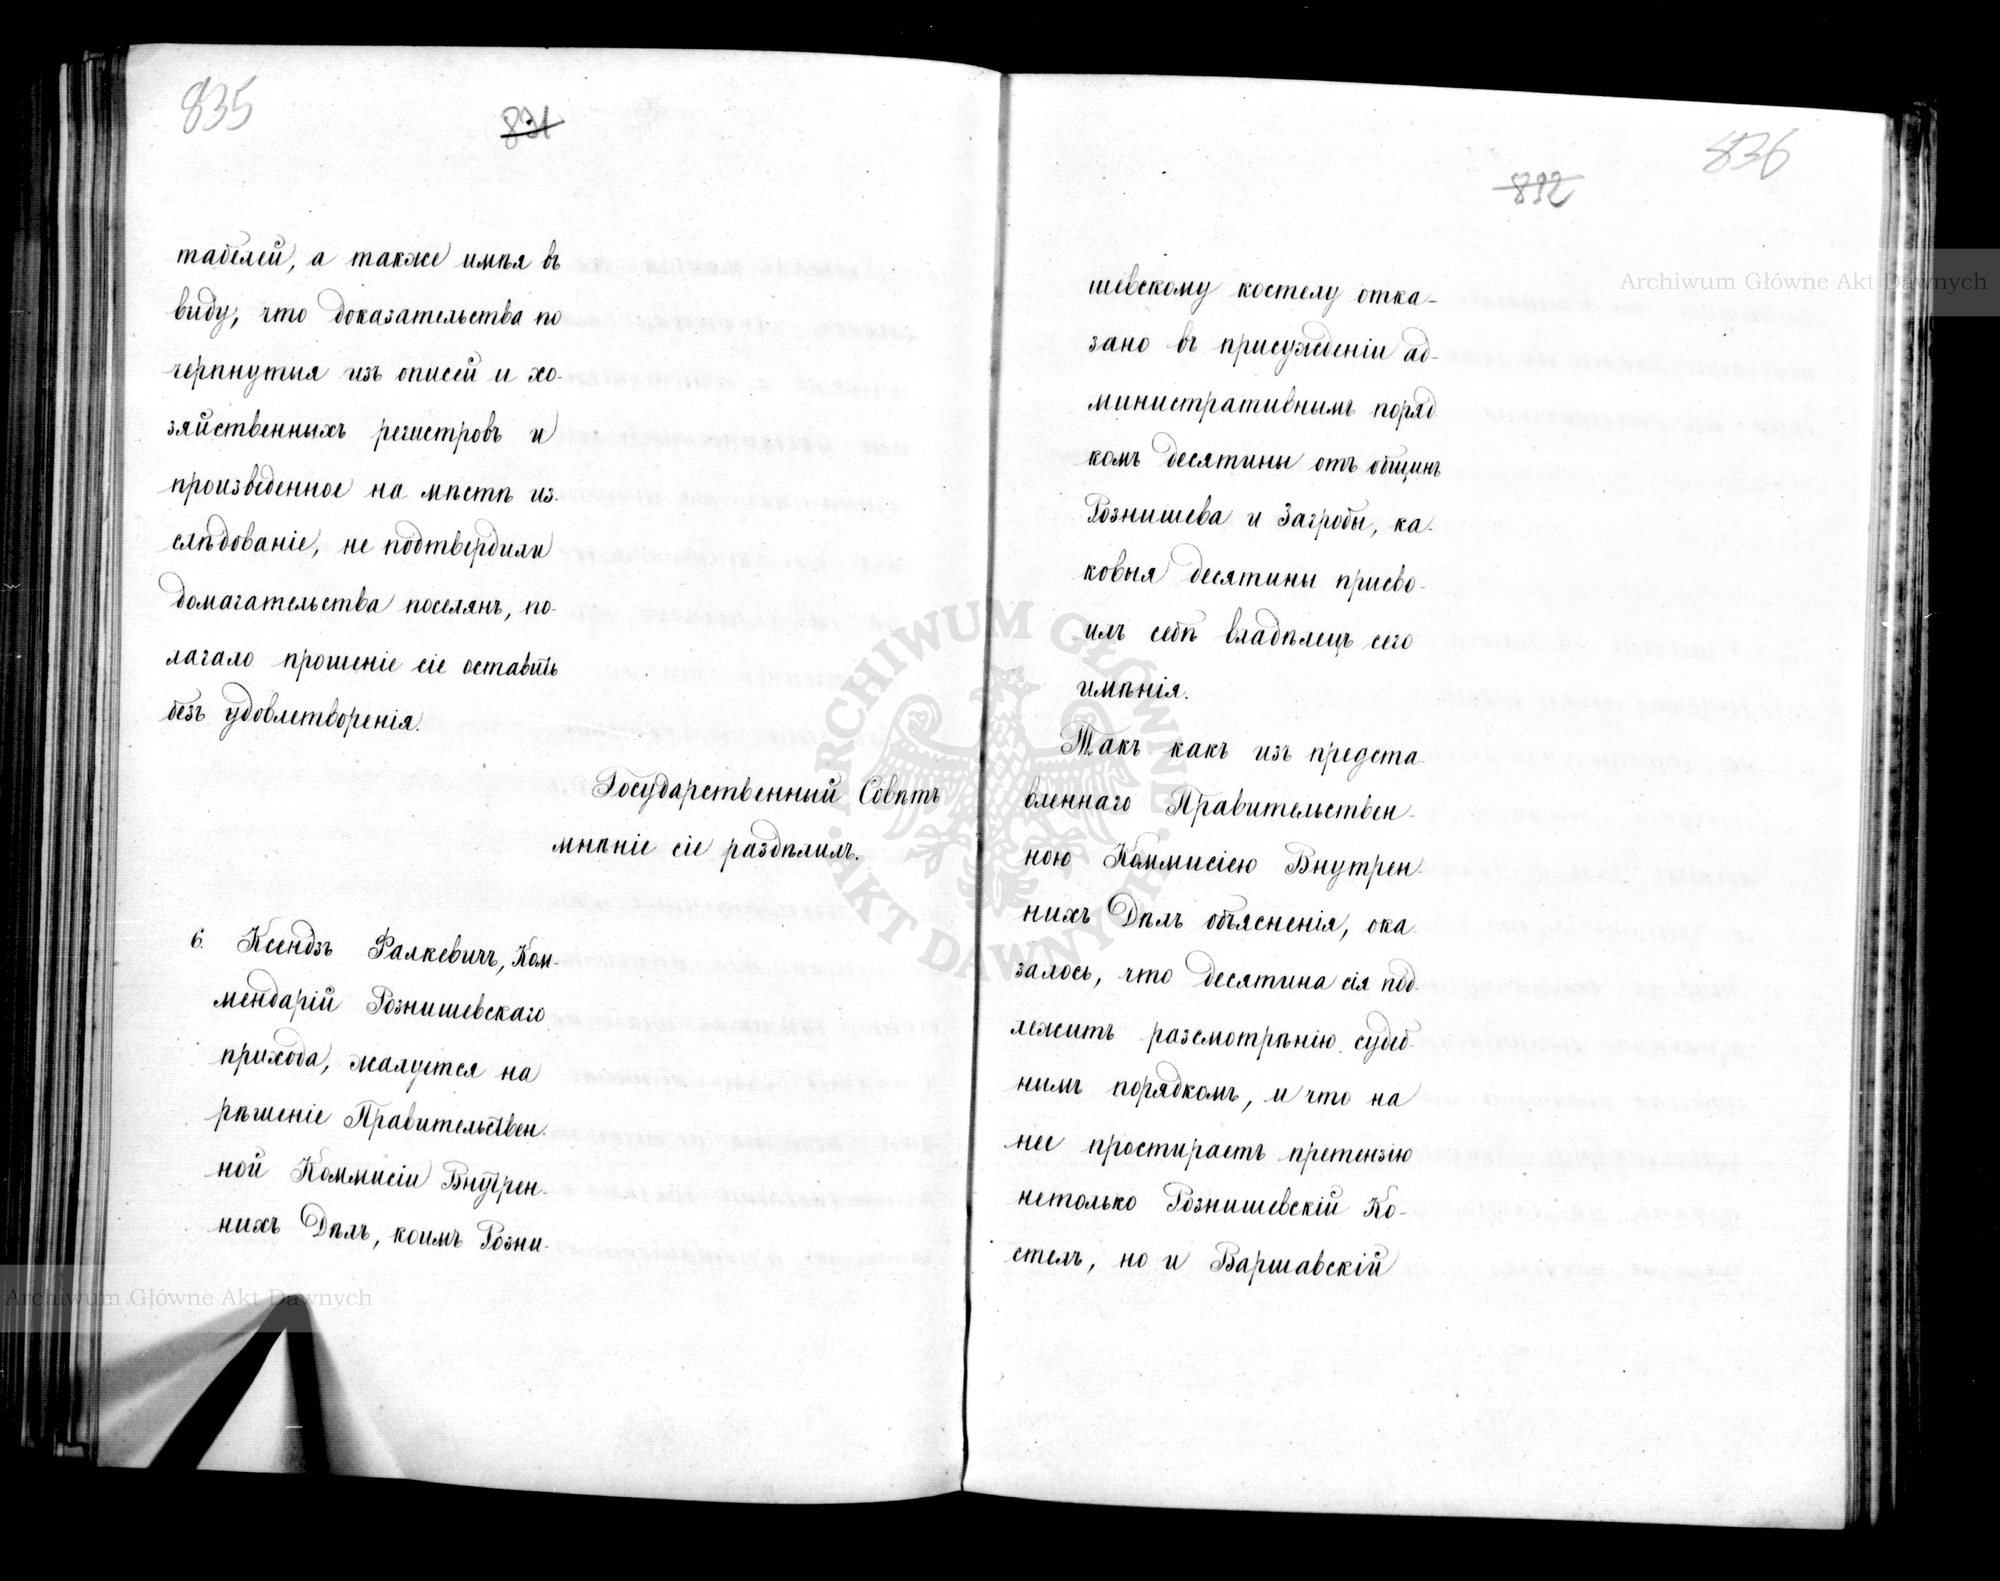 835
831
табелей, а также имѣя въ
виду, что доказательства по
черпнутыя изъ описей и хо-
зяйственныхъ регистровъ и
произведенное на мѣстѣ из-
слѣдованіе, не подтвердили
домагательства поселянъ, по-
лагало прошеніе сіе оставить
безъ удовлетворенія.
Государственный Совѣтъ
мнѣніе сіе раздѣлилъ.
6. Ксендзъ Фалкевичъ, Ком-
мендарій Рознишевскаго
прихода, жалуется на
рѣшеніе Правительствен-
ной Коммисіи Внутрен-
нихъ Дѣлъ, коимъ Розни-
836
832
шевскому костелу отка-
зано въ присужденіи ад-
министративнымъ поряд
комъ десятины отъ общинъ
Рознишева и Загробы, ка-
ковыя десятины присво-
илъ себѣ владѣлецъ сего
имѣнія.
Такъ какъ изъ предста
вленнаго Правительствен-
ною Коммисіею Внутрен-
нихъ Дѣлъ объясненія, ока
залось, что десятина сія под-
лежитъ разсмотрѣнію судеб-
нымъ порядкомъ, и что на
нее простираетъ претензію
нетолько Рознишевскій Ко-
стелъ, но и Варшавскій
Archiwum Główne Akt Dawnych
Archiwum Główne Akt Dawnych
ARCHIWUM GŁÓWNE
AKT DAWNYCH